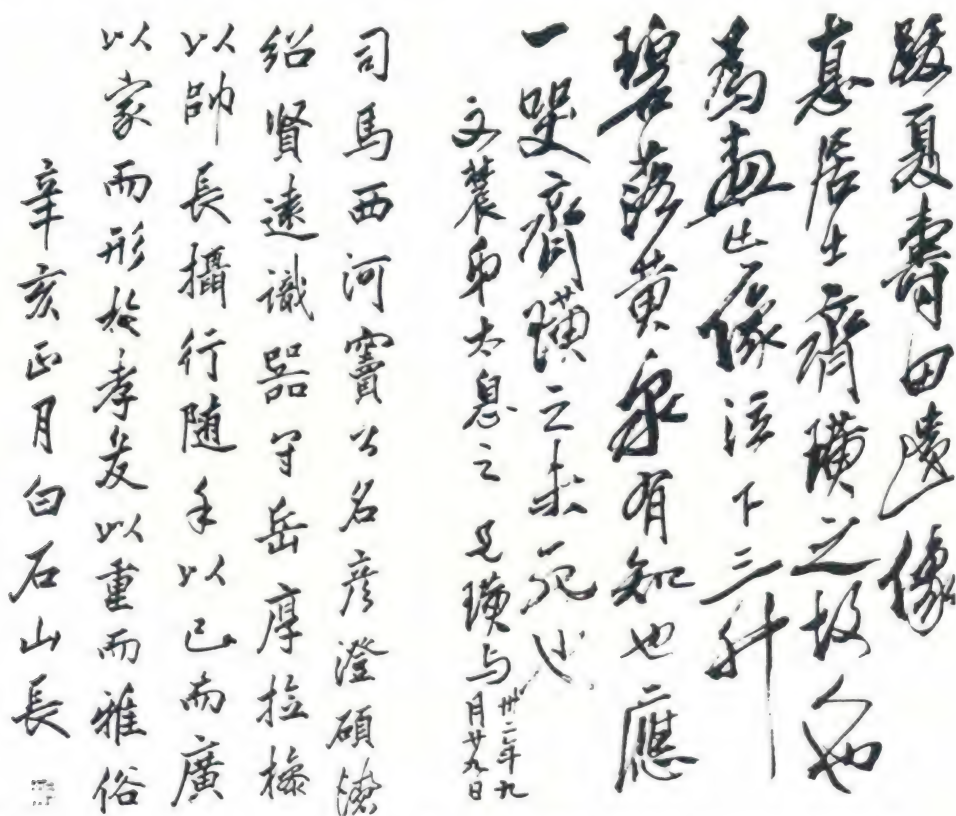 跋夏壽田遺像
直心居士齊璜之故人也
爲畫此像泣下三升
碧落黄泉有知也應
一哭齊璜之未死也
文農弟太息之 兄璜与
卅二年九
月廿九日
司馬西河竇公名彦澄碩
紹賢遠識器守岳厚檢操
以帥長攝行随手以已而廣
以家而形於孝友以重而雅俗
辛亥正月白石山長